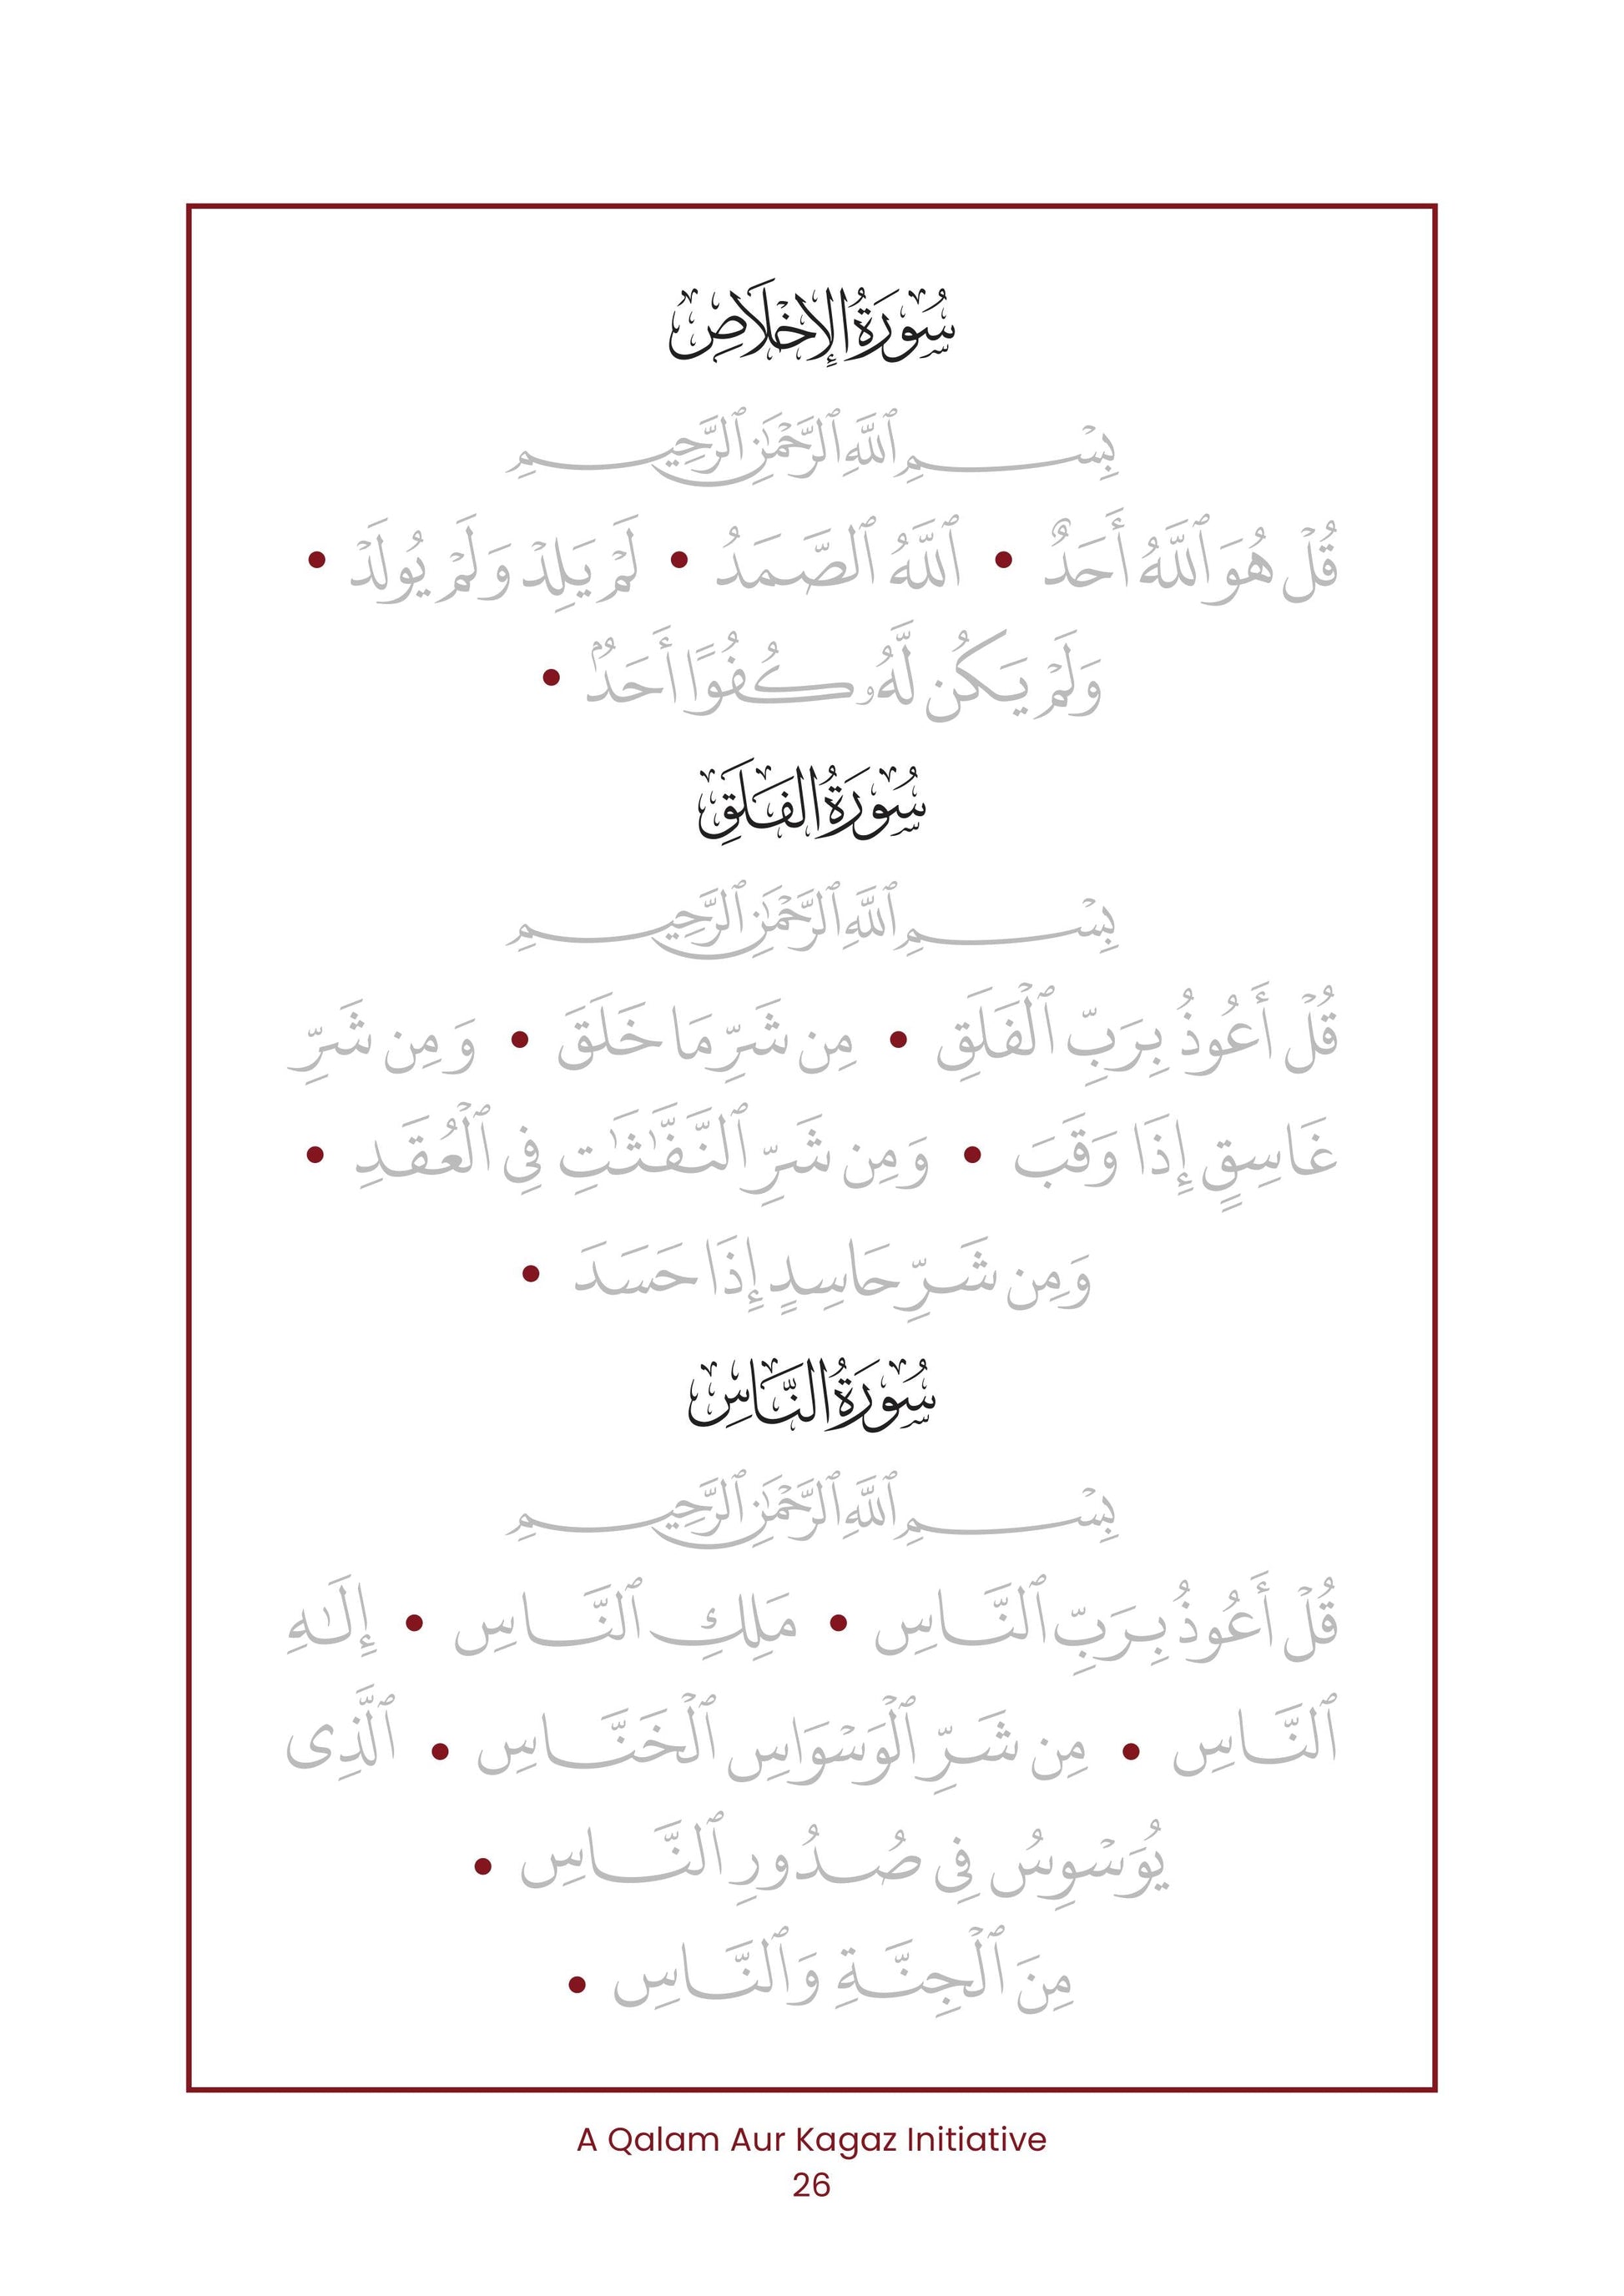 سُورَةُ الإِخْلَاصِ
بِسْمِ ٱللَّهِ ٱلرَّحْمَٰنِ ٱلرَّحِيمِ
قُلْ هُوَ ٱللَّهُ أَحَدٌ • ٱللَّهُ ٱلصَّمَدُ • لَمْ يَلِدْ وَلَمْ يُولَدْ •
وَلَمْ يَكُن لَّهُۥ كُفُوًا أَحَدٌۢ •
سُورَةُ الفَلَقِ
بِسْمِ ٱللَّهِ ٱلرَّحْمَٰنِ ٱلرَّحِيمِ
قُلْ أَعُوذُ بِرَبِّ ٱلْفَلَقِ • مِن شَرِّ مَا خَلَقَ • وَمِن شَرِّ
غَاسِقٍ إِذَا وَقَبَ • وَمِن شَرِّ ٱلنَّفَّٰثَٰتِ فِى ٱلْعُقَدِ •
وَمِن شَرِّ حَاسِدٍ إِذَا حَسَدَ •
سُورَةُ النَّاسِ
بِسْمِ ٱللَّهِ ٱلرَّحْمَٰنِ ٱلرَّحِيمِ
قُلْ أَعُوذُ بِرَبِّ ٱلنَّاسِ • مَلِكِ ٱلنَّاسِ • إِلَٰهِ
ٱلنَّاسِ • مِن شَرِّ ٱلْوَسْوَاسِ ٱلْخَنَّاسِ • ٱلَّذِى
يُوَسْوِسُ فِى صُدُورِ ٱلنَّاسِ •
مِنَ ٱلْجِنَّةِ وَٱلنَّاسِ •
A Qalam Aur Kagaz Initiative
26